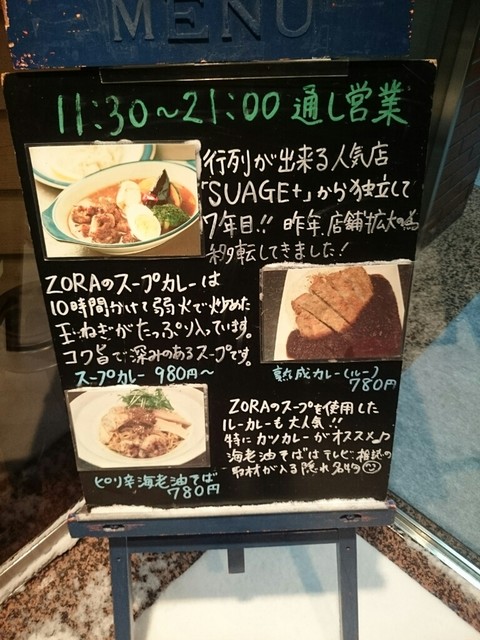 MENU
11:30~21:00 通し営業
行列が出来る人気店
「SUAGE+」から独立して
7年目!! 昨年、店舗拡大の為
移転してきました!
ZORAのスープカレーは
10時間かけて弱火で炒めた
玉ねぎがたっぷり入っています。
コク旨で深みのあるスープです。
スープカレー 980円~
熟成カレー(ルー)
780円
ZORAのスープを使用した
ルーカレーも大人気!!
特にカツカレーがオススメ♪
海老油そばはテレビ、雑誌の
取材が入る隠れ名物
ピリ辛海老油そば
780円